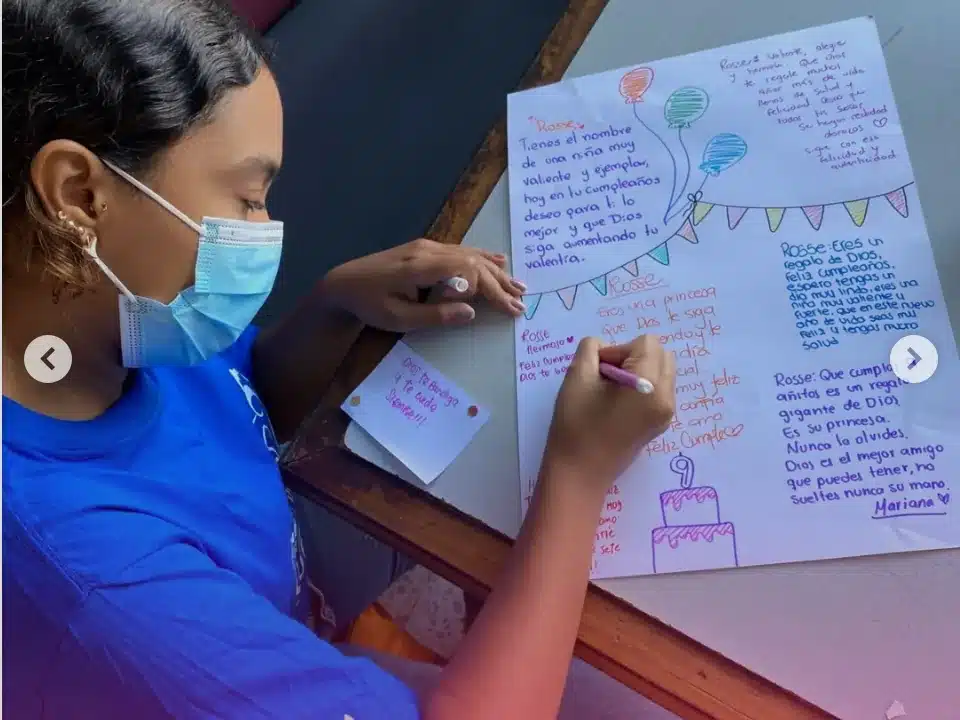 "Rosse"
Tienes el nombre
de una niña muy
valiente y ejemplar,
hoy en tu cumpleaños
deseo para ti lo
mejor y que Dios
siga aumentando tu
valentía.
valiente, alegre
y hermosa. Que Dios
te regale muchos
años más de vida
llenos de salud y
felicidad
todos tus
se hagan realidad
sigue con esa
felicidad y
autenticidad
Rosse
Eres una princesa
Que Dios te siga
endo y te
día
cial
muy feliz
confía
te amo
Feliz Cumple
Rosse
Hermosa
Feliz Cumple
Dios te
Dios te Bendiga
y te cuida
Siempre!!!
Rosse: Eres un
regalo de Dios,
Feliz cumpleaños,
espero tengas un
día muy lindo, eres una
niña muy valiente y
fuerte, que en este nuevo
año de vida seas muy
Feliz y tengas mucha
salud
Rosse: Que cumplas
añitos es un regalo
gigante de Dios
Es su princesa.
Nunca lo olvides.
Dios es el mejor amigo
que puedes tener, no
sueltes nunca su mano.
Mariana
9